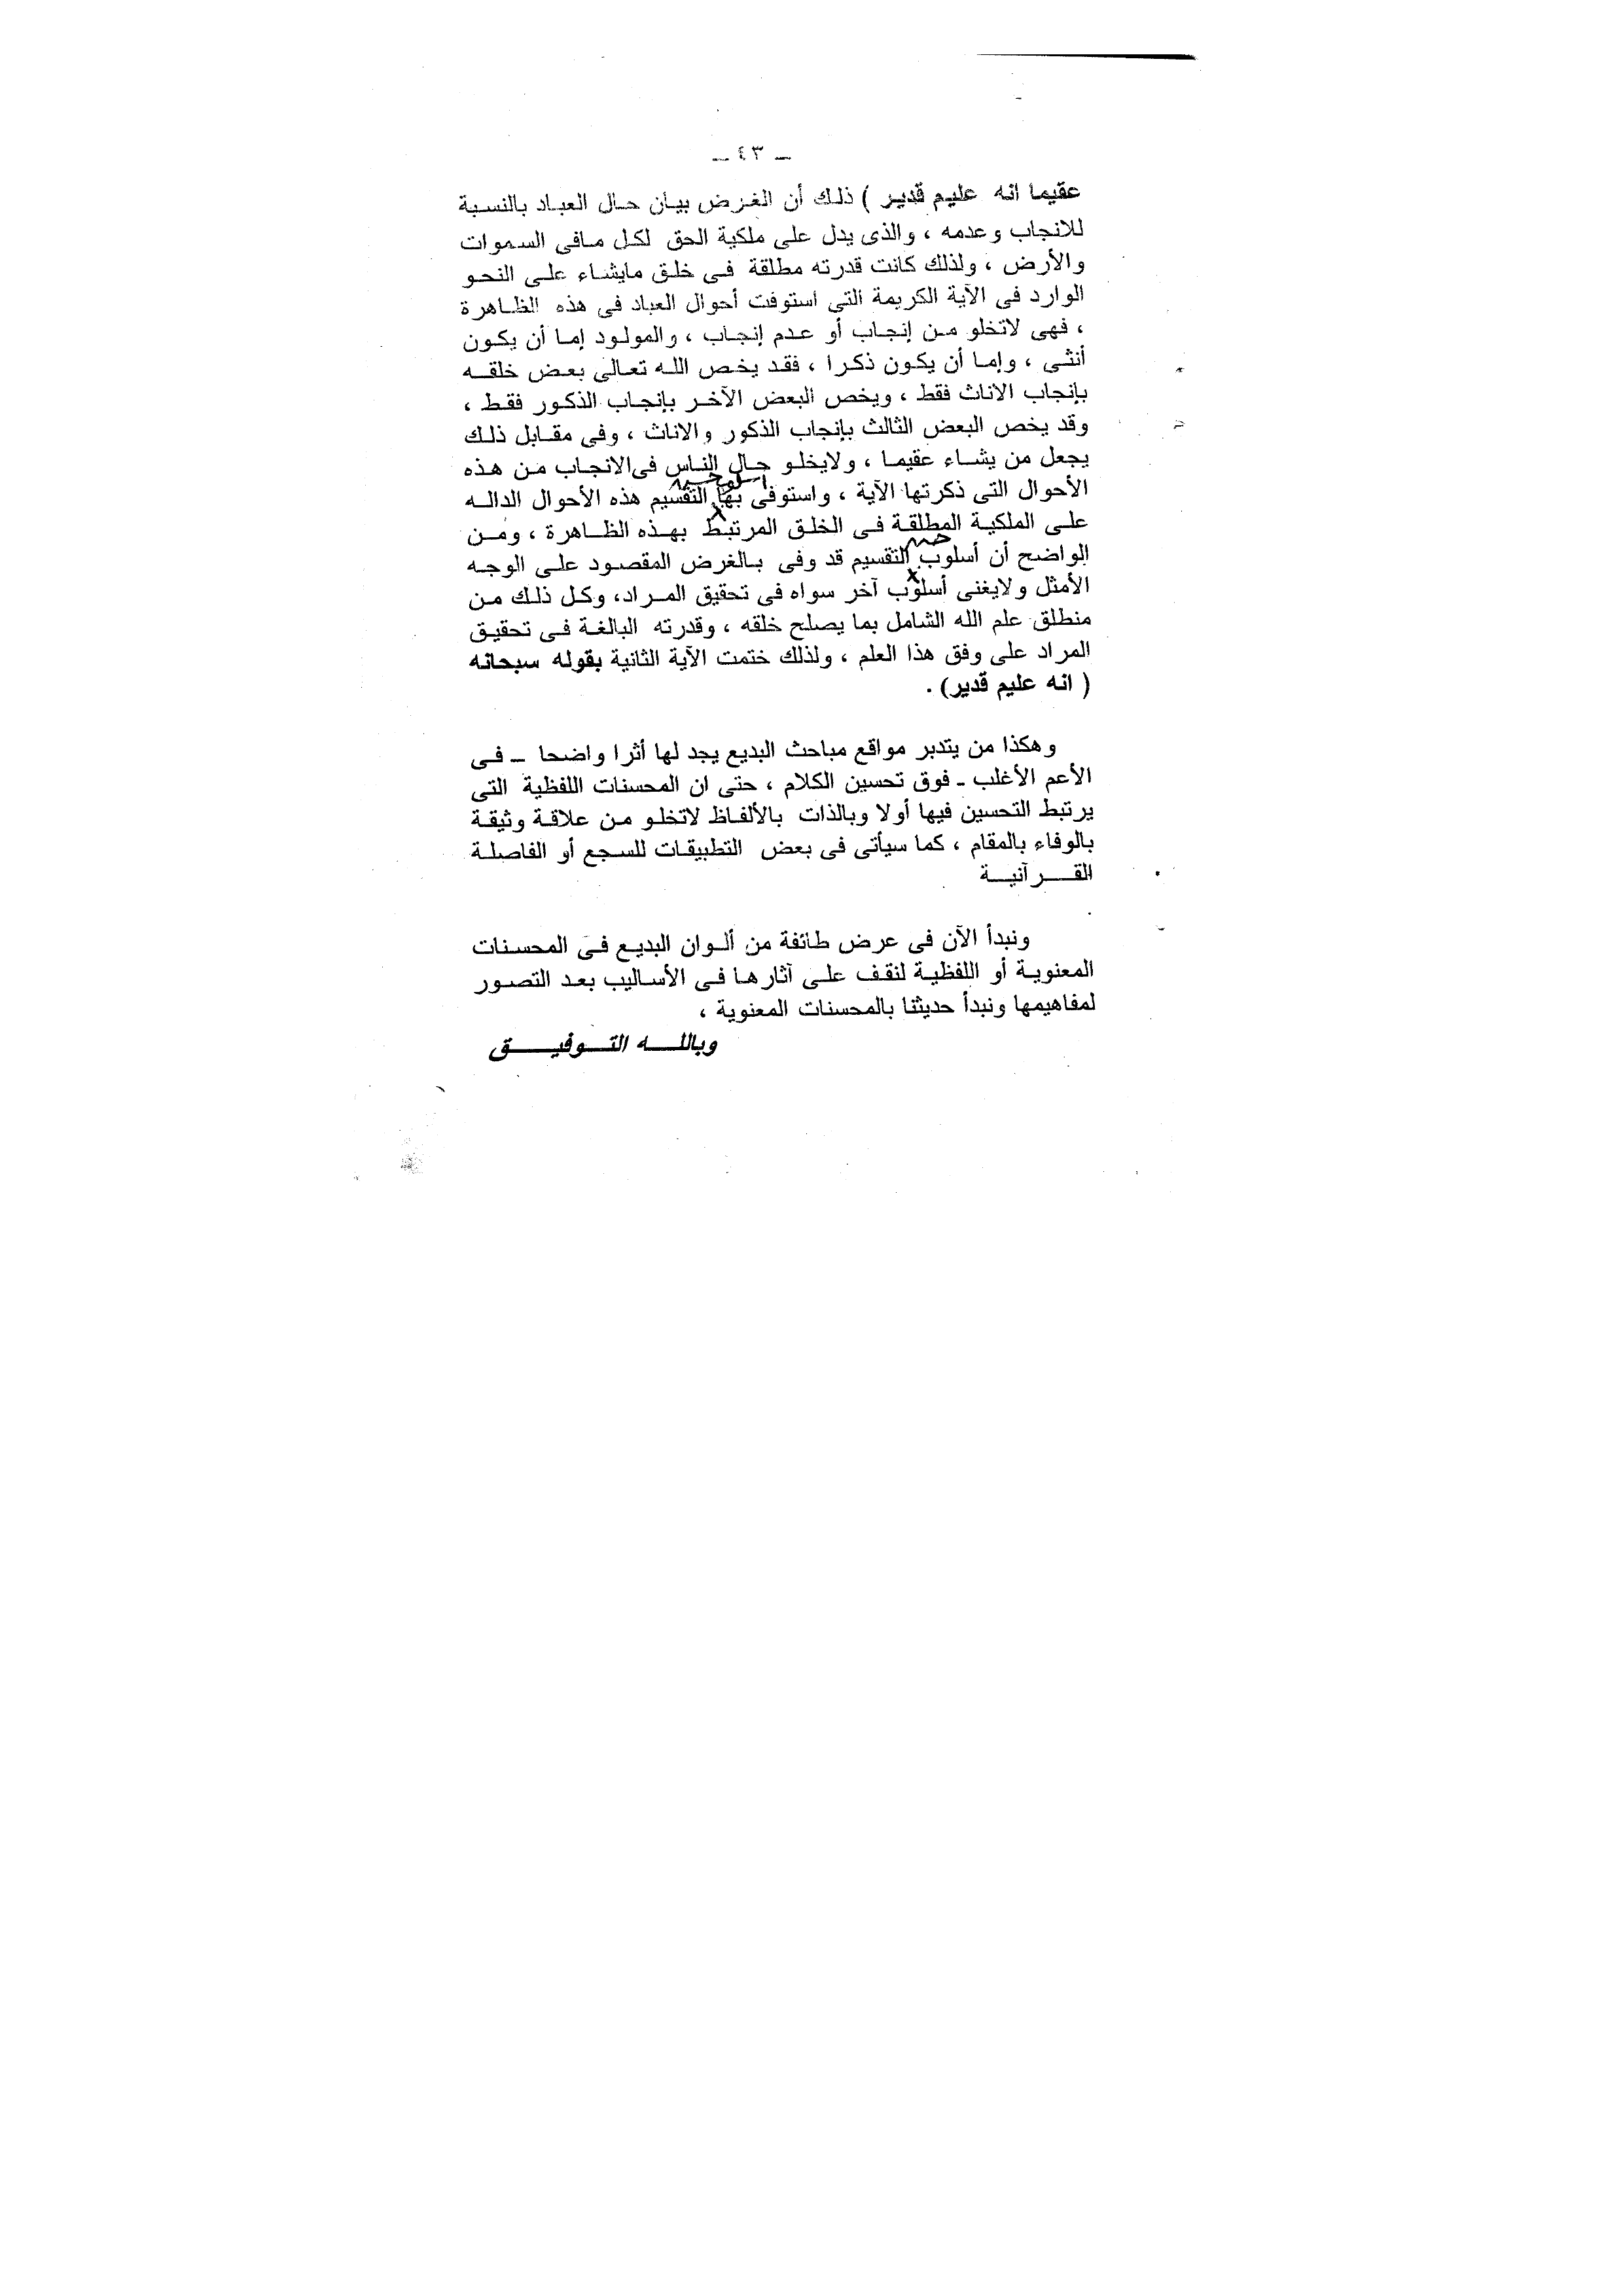 ـ ٤٣ ـ
عقيما انه عليم قدير ) ذلك أن الغرض بيان حال العباد بالنسبة
للانجاب وعدمه ، والذى يدل على ملكية الحق لكل مافى السموات
والأرض ، ولذلك كانت قدرته مطلقة فى خلق مايشاء على النحو
الوارد فى الآية الكريمة التى استوفت أحوال العباد فى هذه الظاهرة
، فهى لاتخلو من إنجاب أو عدم إنجاب ، والمولود إما أن يكون
أنثى ، وإما أن يكون ذكرا ، فقد يخص الله تعالى بعض خلقه
بإنجاب الاناث فقط ، ويخص البعض الآخر بإنجاب الذكور فقط ،
وقد يخص البعض الثالث بإنجاب الذكور والاناث ، وفى مقابل ذلك
يجعل من يشاء عقيما ، ولايخلو حال الناس فى الانجاب من هذه
الأحوال التى ذكرتها الآية ، واستوفى بها التقسيم هذه الأحوال الداله
على الملكية المطلقة فى الخلق المرتبط بهذه الظاهرة ، ومن
الواضح أن أسلوب التقسيم قد وفى بالغرض المقصود على الوجه
الأمثل ولايغنى أسلوب آخر سواه فى تحقيق المراد، وكل ذلك من
منطلق علم الله الشامل بما يصلح خلقه ، وقدرته البالغة فى تحقيق
المراد على وفق هذا العلم ، ولذلك ختمت الآية الثانية بقوله سبحانه
( انه عليم قدير) .
وهكذا من يتدبر مواقع مباحث البديع يجد لها أثرا واضحا ـ فى
الأعم الأغلب ـ فوق تحسين الكلام ، حتى ان المحسنات اللفظية التى
يرتبط التحسين فيها أولا وبالذات بالألفاظ لاتخلو من علاقة وثيقة
بالوفاء بالمقام ، كما سيأتى فى بعض التطبيقات للسجع أو الفاصلة
القرآنية
ونبدأ الآن فى عرض طائفة من ألوان البديع فى المحسنات
المعنوية أو اللفظية لنقف على آثارها فى الأساليب بعد التصور
لمفاهيمها ونبدأ حديثنا بالمحسنات المعنوية ،
وبالله التوفيق